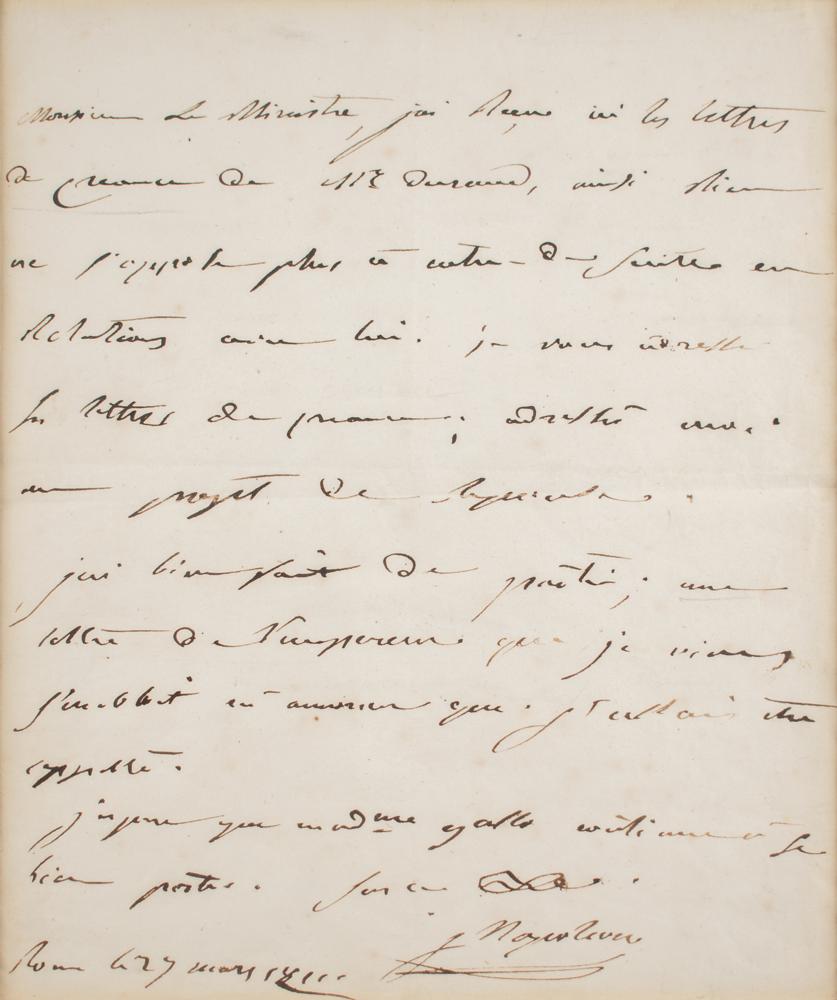 Monsieur Le Ministre, jai Reçu ici les lettres
de creance de Mr Durand, ainsi Rien
ne s'oppose plus a votre de suitte en
Relations avec lui. je vous adresse
ses lettres de creance; adressés moi
un projet de Reponse.
jai bien fait de partir; une
lettre de l'empereur que je viens
que j'allais etre
appellé.
j'espere que madme gallo continue a se
bien porter. sur ce
j Napoleon
Rome le 27 mars